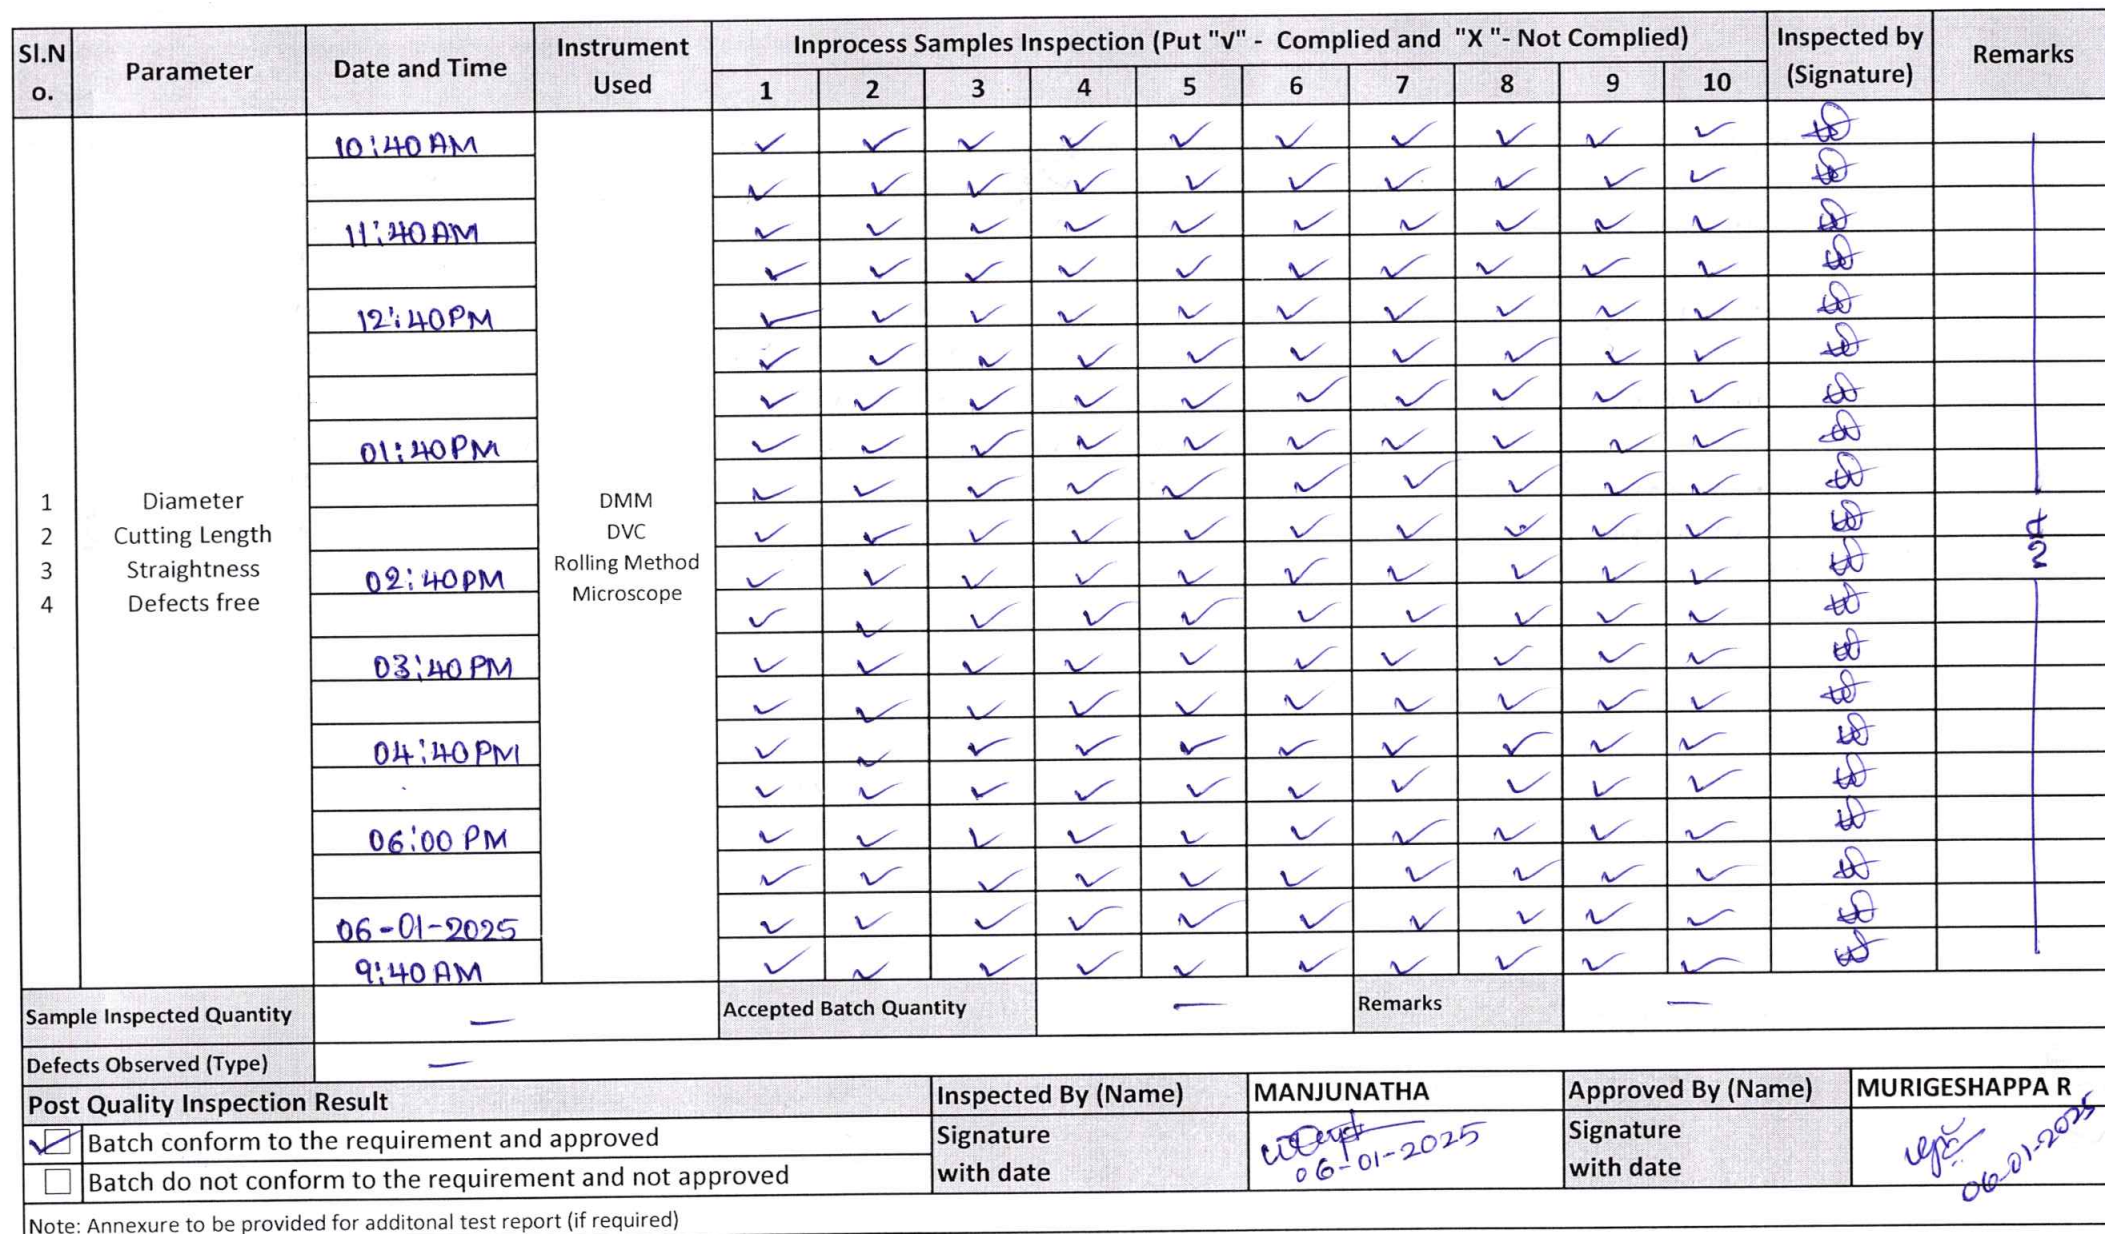 Sl.No. Parameter Date and Time Instrument Used Inprocess Samples Inspection (Put "√" - Complied and "X "- Not Complied) Inspected by (Signature) Remarks
1 2 3 4 5 6 7 8 9 10
10:40 AM ✓ ✓ ✓ ✓ ✓ ✓ ✓ ✓ ✓ ✓
✓ ✓ ✓ ✓ ✓ ✓ ✓ ✓ ✓ ✓
11:40 AM ✓ ✓ ✓ ✓ ✓ ✓ ✓ ✓ ✓ ✓
✓ ✓ ✓ ✓ ✓ ✓ ✓ ✓ ✓ ✓
12:40 PM ✓ ✓ ✓ ✓ ✓ ✓ ✓ ✓ ✓ ✓
✓ ✓ ✓ ✓ ✓ ✓ ✓ ✓ ✓ ✓
✓ ✓ ✓ ✓ ✓ ✓ ✓ ✓ ✓ ✓
01:40 PM ✓ ✓ ✓ ✓ ✓ ✓ ✓ ✓ ✓ ✓
1 Diameter DMM ✓ ✓ ✓ ✓ ✓ ✓ ✓ ✓ ✓ ✓
2 Cutting Length DVC ✓ ✓ ✓ ✓ ✓ ✓ ✓ ✓ ✓ ✓
3 Straightness 02:40 PM Rolling Method ✓ ✓ ✓ ✓ ✓ ✓ ✓ ✓ ✓ ✓
4 Defects free Microscope ✓ ✓ ✓ ✓ ✓ ✓ ✓ ✓ ✓ ✓
03:40 PM ✓ ✓ ✓ ✓ ✓ ✓ ✓ ✓ ✓ ✓
✓ ✓ ✓ ✓ ✓ ✓ ✓ ✓ ✓ ✓
04:40 PM ✓ ✓ ✓ ✓ ✓ ✓ ✓ ✓ ✓ ✓
✓ ✓ ✓ ✓ ✓ ✓ ✓ ✓ ✓ ✓
06:00 PM ✓ ✓ ✓ ✓ ✓ ✓ ✓ ✓ ✓ ✓
✓ ✓ ✓ ✓ ✓ ✓ ✓ ✓ ✓ ✓
06-01-2025 ✓ ✓ ✓ ✓ ✓ ✓ ✓ ✓ ✓ ✓
9:40 AM ✓ ✓ ✓ ✓ ✓ ✓ ✓ ✓ ✓ ✓
Sample Inspected Quantity — Accepted Batch Quantity — Remarks —
Defects Observed (Type) —
Post Quality Inspection Result Inspected By (Name) MANJUNATHA Approved By (Name) MURIGESHAPPA R
✓ Batch conform to the requirement and approved Signature with date 06-01-2025 Signature with date 06-01-2025
Batch do not conform to the requirement and not approved
Note: Annexure to be provided for additonal test report (if required)